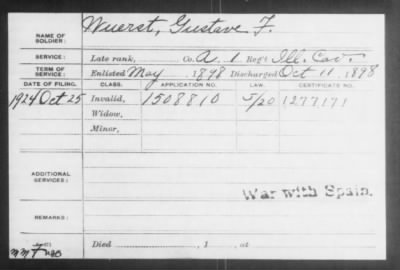 NAME OF SOLDIER: Wuerst, Gustave F.
SERVICE: Late rank, Co. A. 1. Reg't Ill. Cav.
TERM OF SERVICE: Enlisted May , 1898 Discharged Oct 11 , 1898
DATE OF FILING. CLASS. APPLICATION NO. LAW. CERTIFICATE NO.
1924 Oct 25 Invalid, 1508810 5/20 1277171
Widow,
Minor,
ADDITIONAL SERVICES:
War with Spain.
REMARKS:
Died , 1 , at